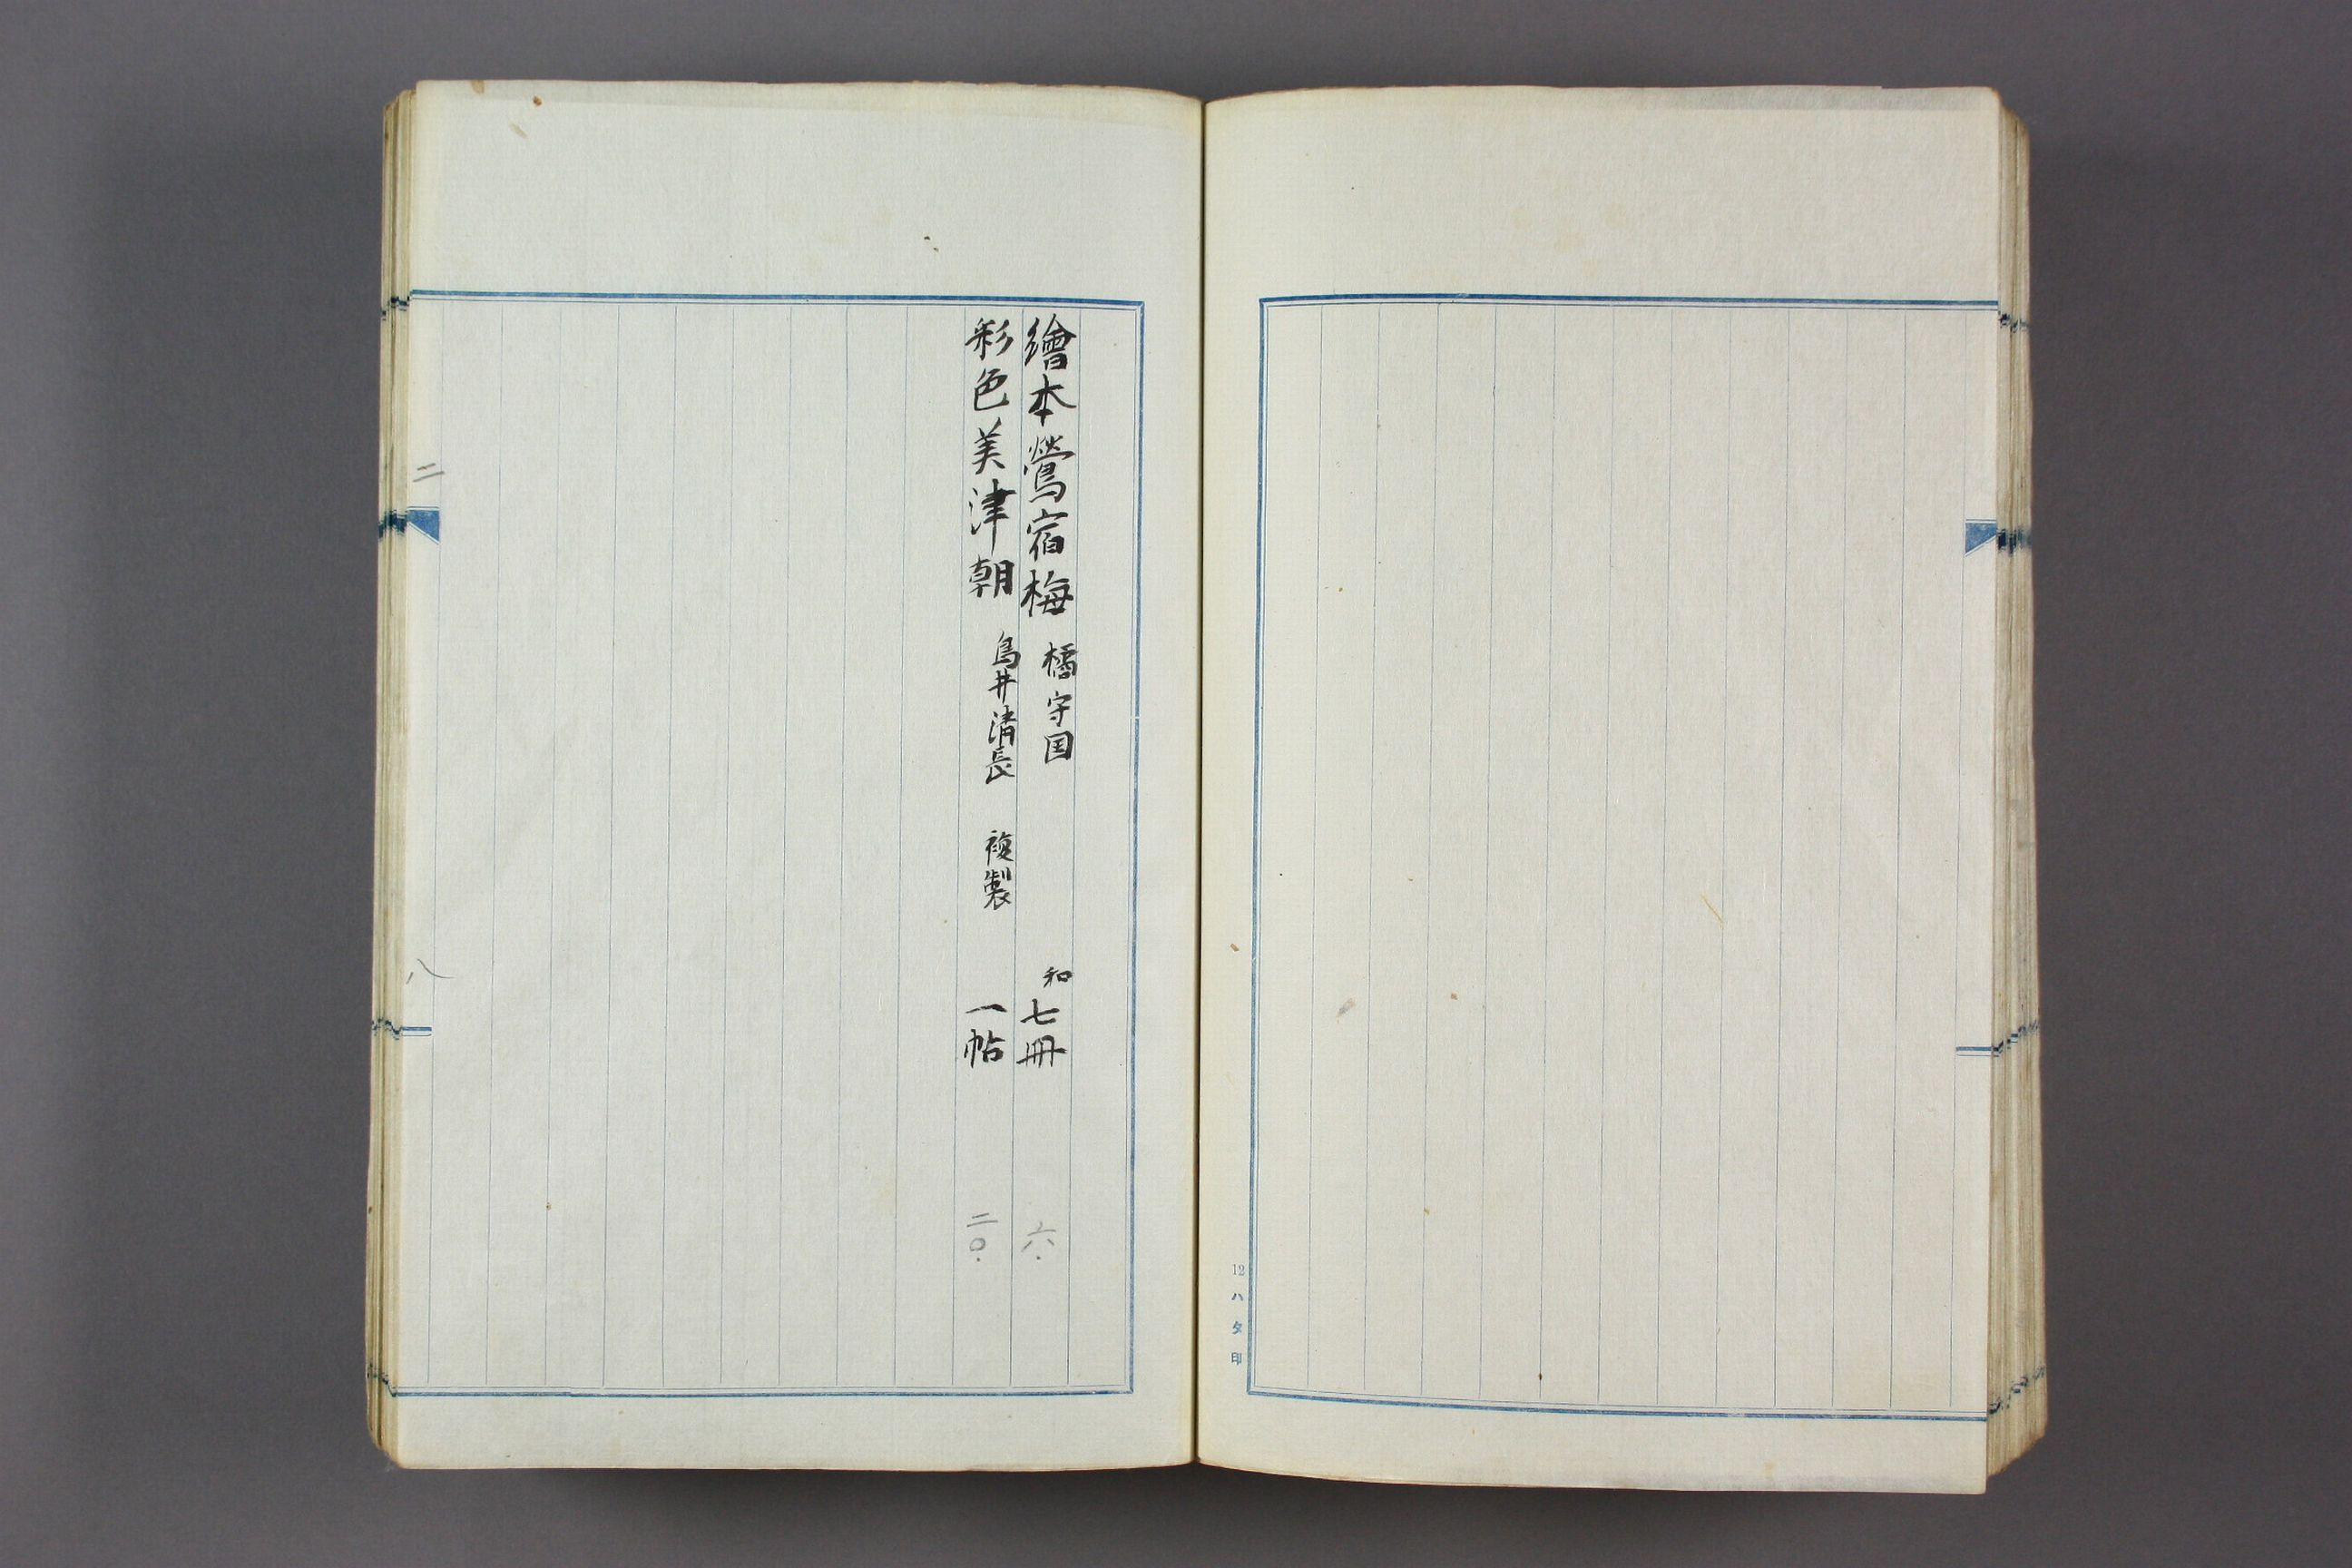 12 ハタ印
繪本鶯宿梅 橘守国 和 七冊 六.
彩色美津朝 鳥井清長 複製 一帖 二〇.
二 八